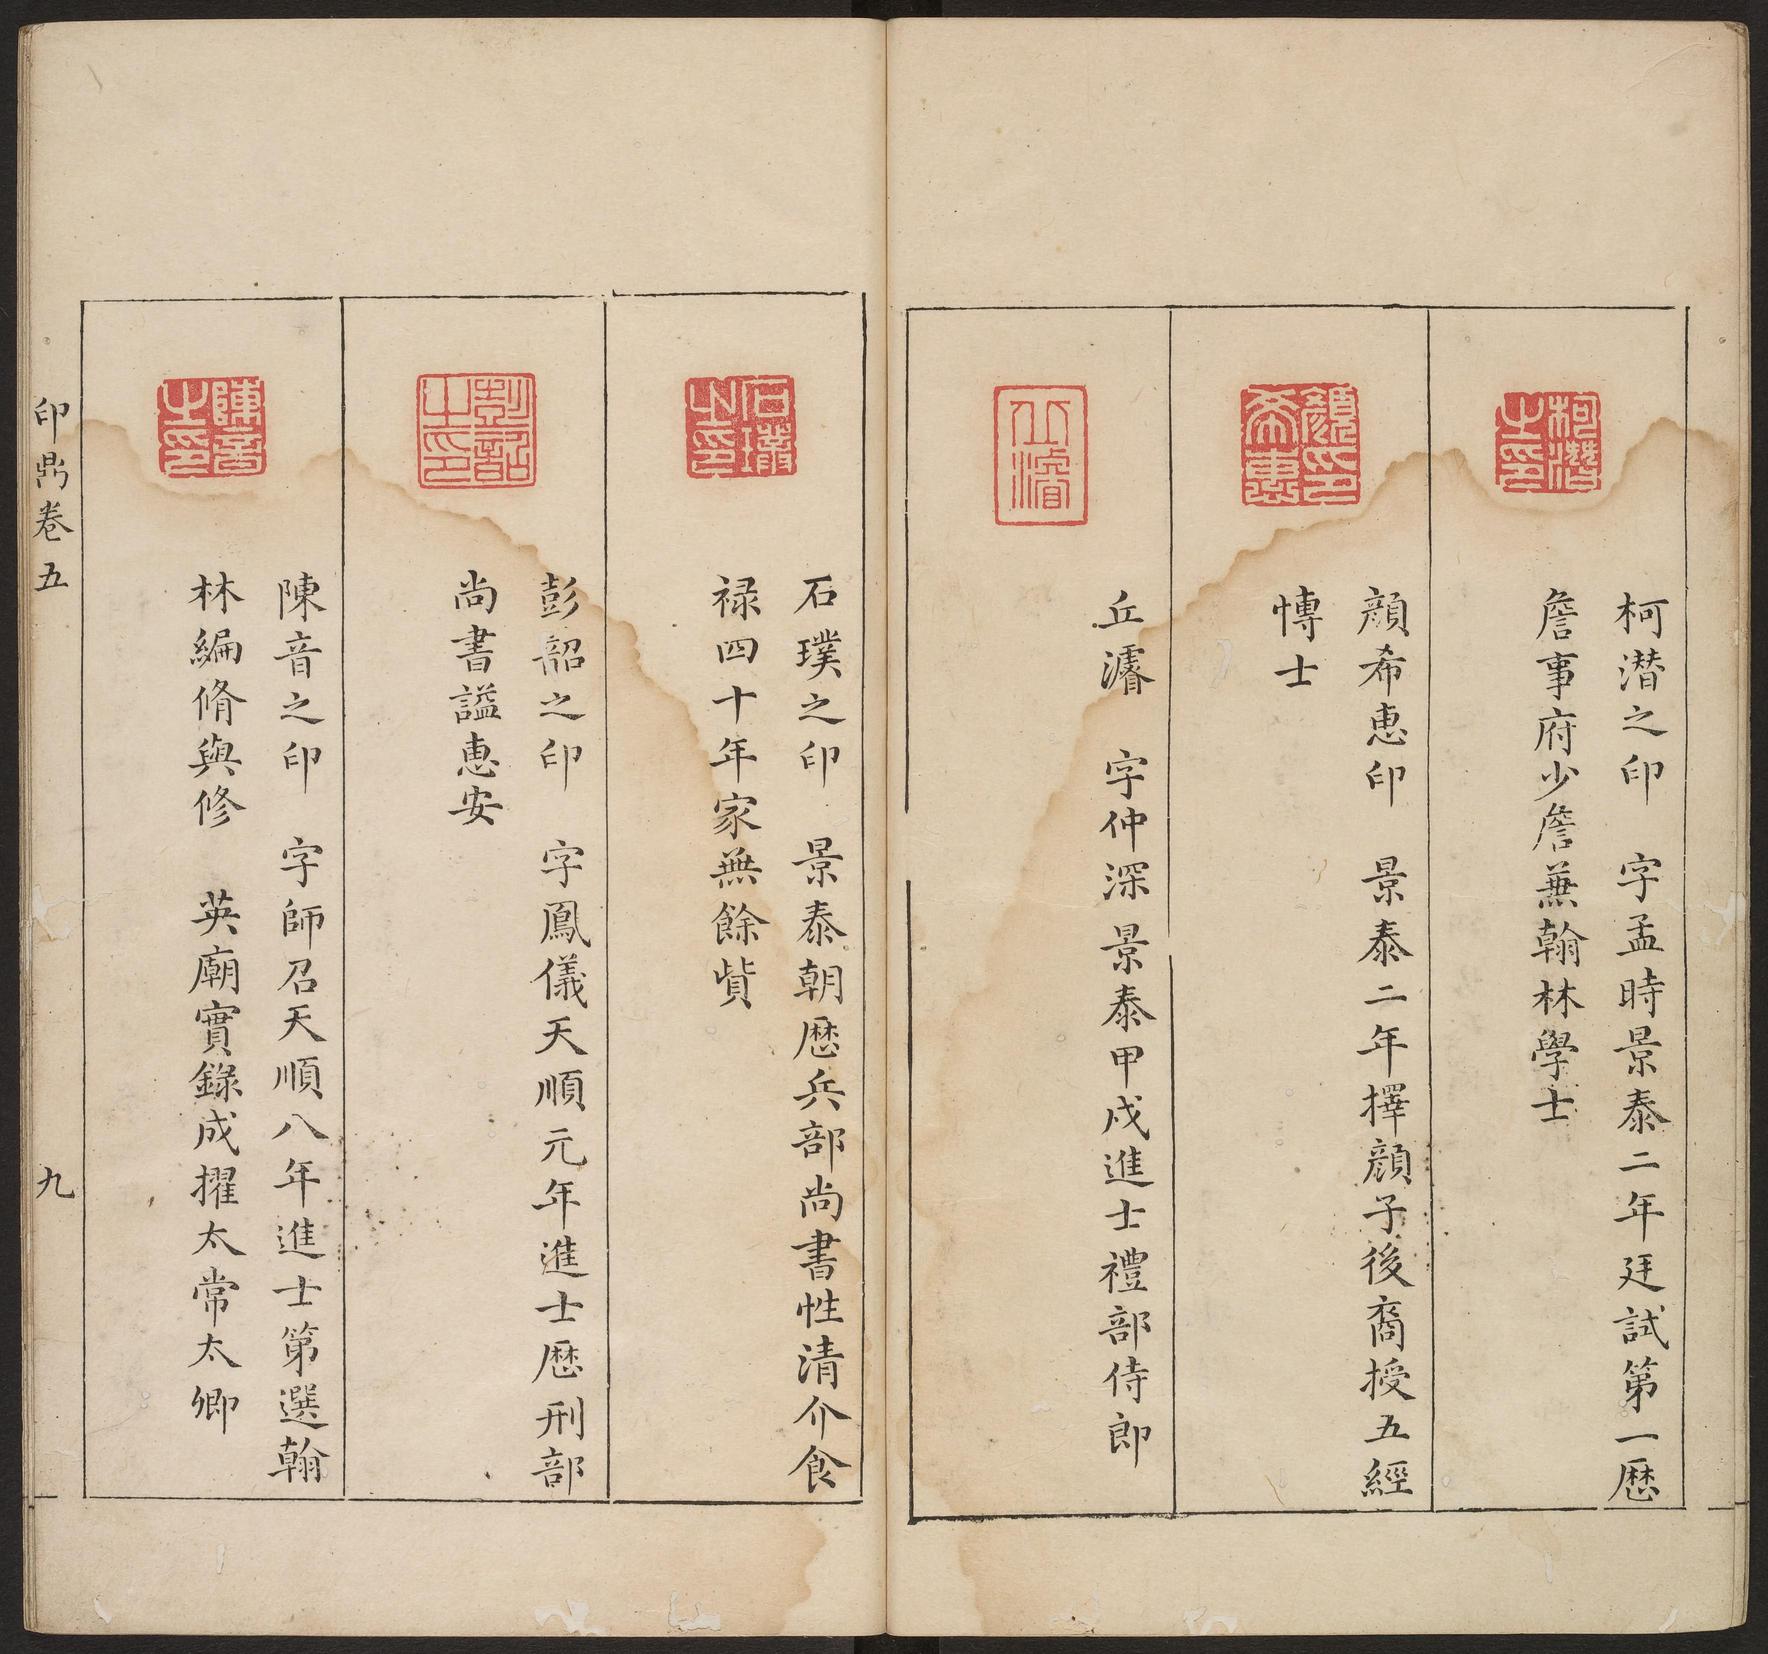 柯潛之印
柯潛之印　字孟時景泰二年廷試第一歷
詹事府少詹兼翰林學士
顏希惠印
顏希惠印　景泰二年擇顏子後裔授五經
博士
丘濬
丘濬　字仲深景泰甲戍進士禮部侍郎
石璞之印
石璞之印　景泰朝歷兵部尚書性清介食
禄四十年家無餘貲
彭韶之印
彭韶之印　字鳳儀天順元年進士歷刑部
尚書謚惠安
陳音之印
陳音之印　字師召天順八年進士第選翰
林編脩與修　英廟實錄成擢太常太卿
印鼎卷五
九